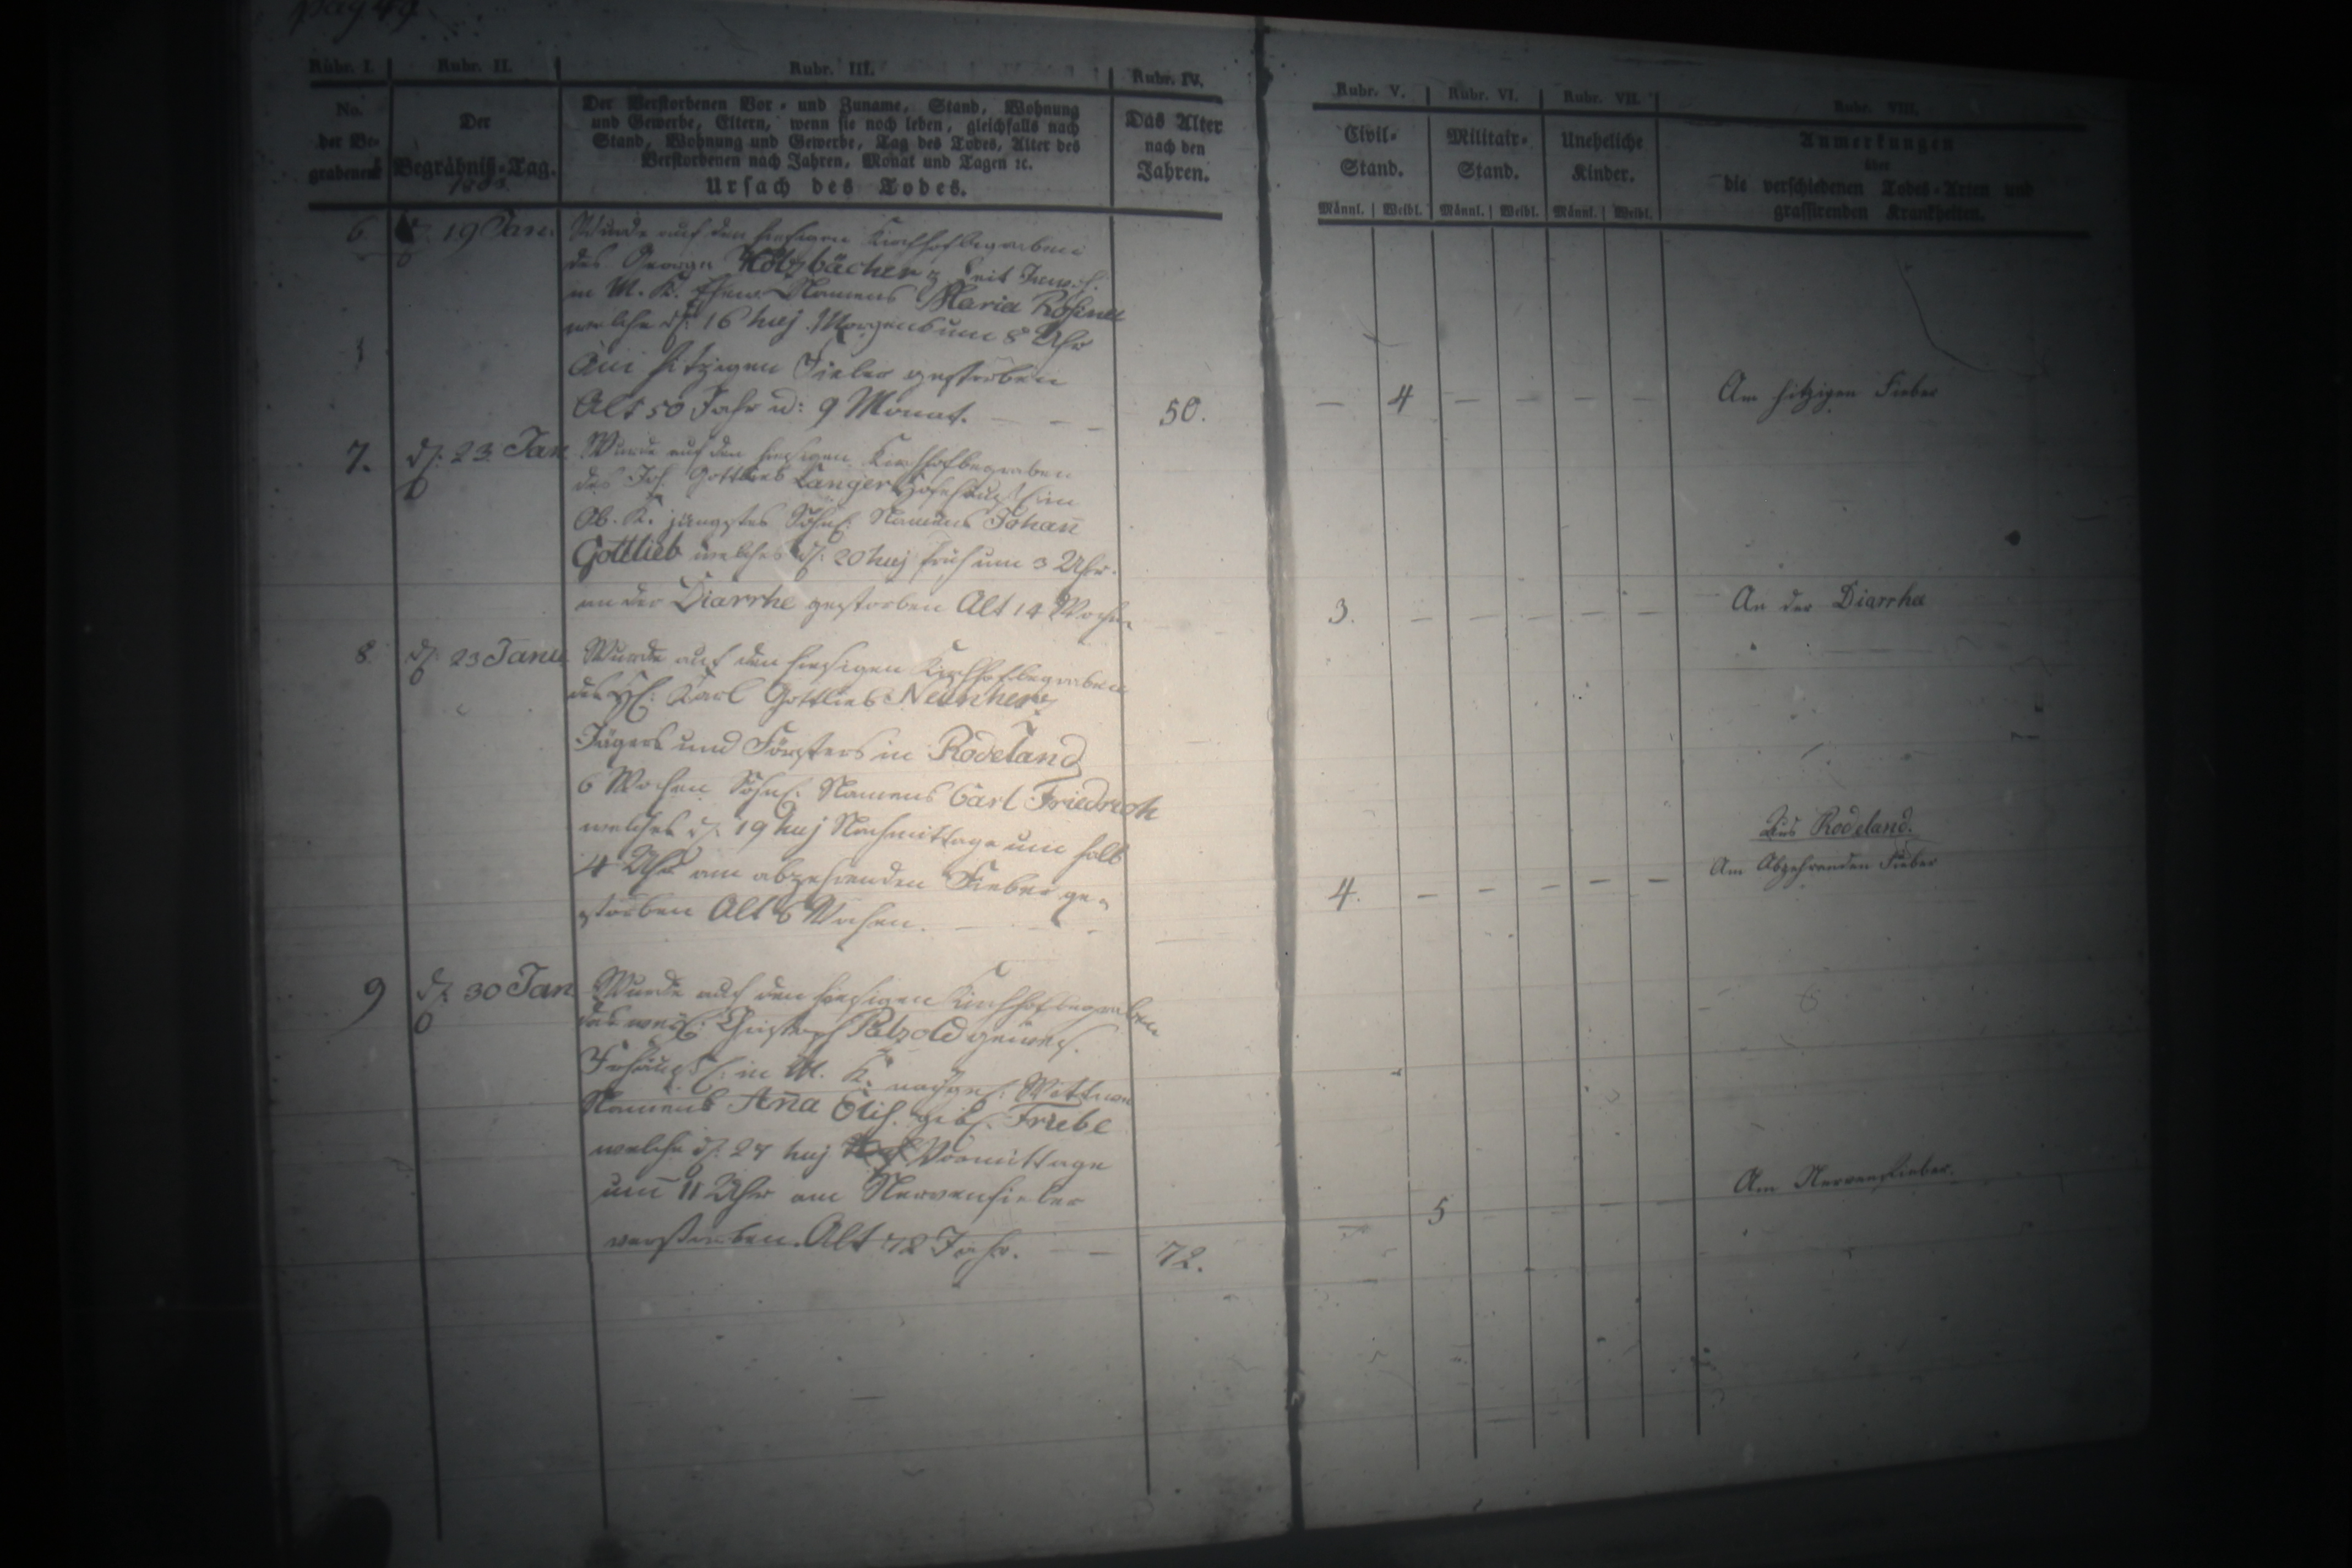 pag 49
Rubr. I. Rubr. II. Rubr. III. Rubr. IV. Rubr. V. Rubr. VI. Rubr. VII. Rubr. VIII.
No. der Begrabenen
Der Begräbniß-Tag.
Der Verstorbenen Vor- und Zuname, Stand, Wohnung
und Gewerbe, Eltern, wenn sie noch leben, gleichfalls nach
Stand, Wohnung und Gewerbe, Tag des Todes, Alter des
Verstorbenen nach Jahren, Monat und Tagen ꝛc.
Ursach des Todes.
Das Alter
nach den
Jahren.
Civil-
Stand.
Militair-
Stand.
Uneheliche
Kinder.
Anmerkungen
über
die verschiedenen Todes-Arten und
grassirenden Krankheiten.
Männl. Weibl. Männl. Weibl. Männl. Weibl.
6 19 Jan. Wurde auf den hiesigen Kirchhof begraben
des George Holzbächer
in M. K. Namens Maria Rosina
welche d. 16 huj Morgens um 8 Uhr
Am hitzigen Fieber gestorben
Alt 50 Jahr u: 9 Monat. 50. – 4 – – – – Am hitzigen Fieber
7. d. 23 Jan Wurde auf den hiesigen Kirchhof begraben
des Joh. Gottlieb Langer
Ob. K. jüngstes Söhnl. Namens Johan̄
Gottlieb welches d. 20 huj früh um 3 Uhr
an der Diarrhe gestorben Alt 14 Wochen 3. – – – – – An der Diarrhe
8 d. 23 Janu Wurde auf den hiesigen Kirchhof begraben
des H. Karl Gottlieb Neunherz
Jägers und Försters in Rodeland
6 Wochen Söhnl. Namens Carl Friedrich
welches d. 19 huj Nachmittage um halb
4 Uhr am abzehrenden Fieber ge=
storben Alt 6 Wochen. 4. – – – – –
Aus Rodeland.
Am Abzehrenden Fieber
9 d. 30 Jan Wurde auf den hiesigen Kirchhof begraben
des weil. Christoph Patzold gewes.
in M. K. nachgel. Wittwe
Namens An̄a Elis. geb. Friebe
welche d. 27 huj Vormittage
um 11 Uhr am Nervenfieber
verstorben. Alt 72 Jahr. 72. – 5 – – – – Am Nervenfieber.